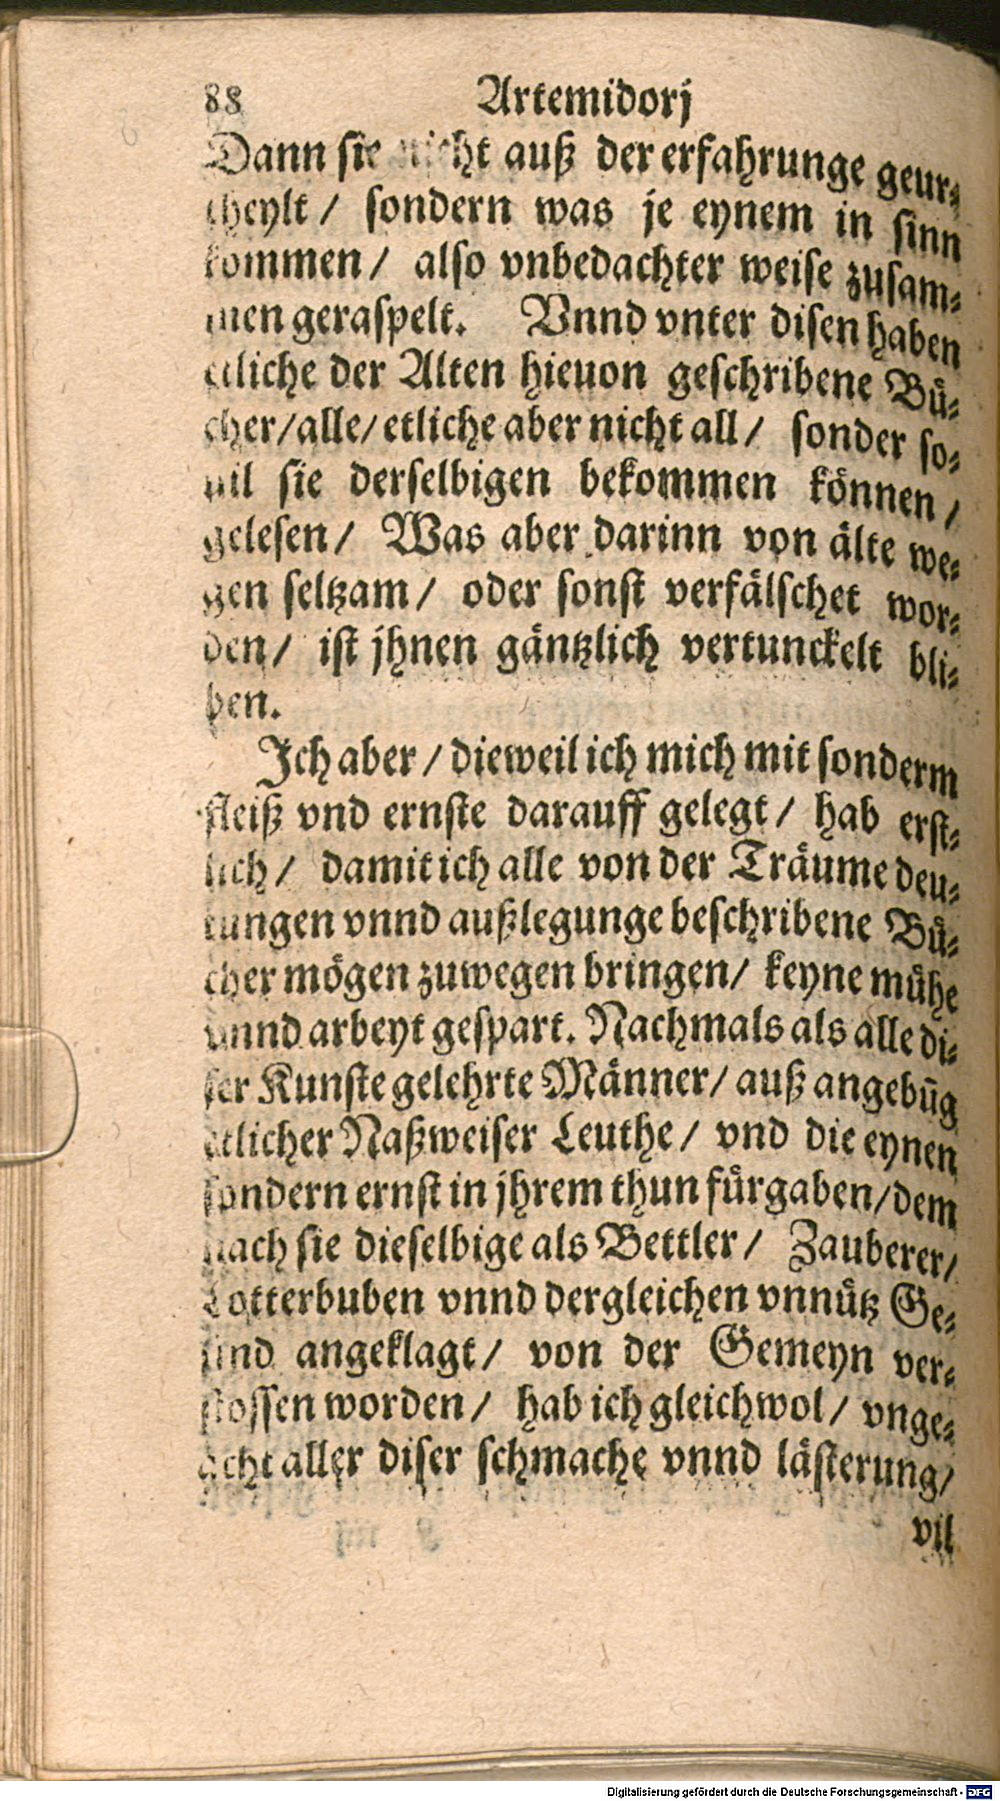 88 Artemidorj
Dann sie nicht auß der erfahrunge geur⸗
theylt / sondern was je eynem in sinn
kommen / also vnbedachter weise zusam⸗
men geraspelt. Vnnd vnter disen haben
etliche der Alten hieuon geschribene Bü⸗
cher / alle / etliche aber nicht all / sonder so⸗
uil sie derselbigen bekommen können /
gelesen / Was aber darinn von älte we⸗
gen seltzam / oder sonst verfälschet wor⸗
den / ist jhnen gäntzlich vertunckelt bli⸗
ben.
Ich aber / dieweil ich mich mit sonderm
fleiß vnd ernste darauff gelegt / hab erst⸗
lich / damit ich alle von der Träume deu⸗
tungen vnnd außlegunge beschribene Bü⸗
cher mögen zuwegen bringen / keyne mühe
vnnd arbeyt gespart. Nachmals als alle di⸗
ser Kunste gelehrte Männer / auß angebũg
etlicher Naßweiser Leuthe / vnd die eynen
sondern ernst in jhrem thun fürgaben / dem
nach sie dieselbige als Bettler / Zauberer /
Lotterbuben vnnd dergleichen vnnütz Ge⸗
sind angeklagt / von der Gemeyn ver⸗
stossen worden / hab ich gleichwol / vnge⸗
acht aller diser schmache vnnd lästerung /
vil
Digitalisierung gefördert durch die Deutsche Forschungsgemeinschaft - DFG